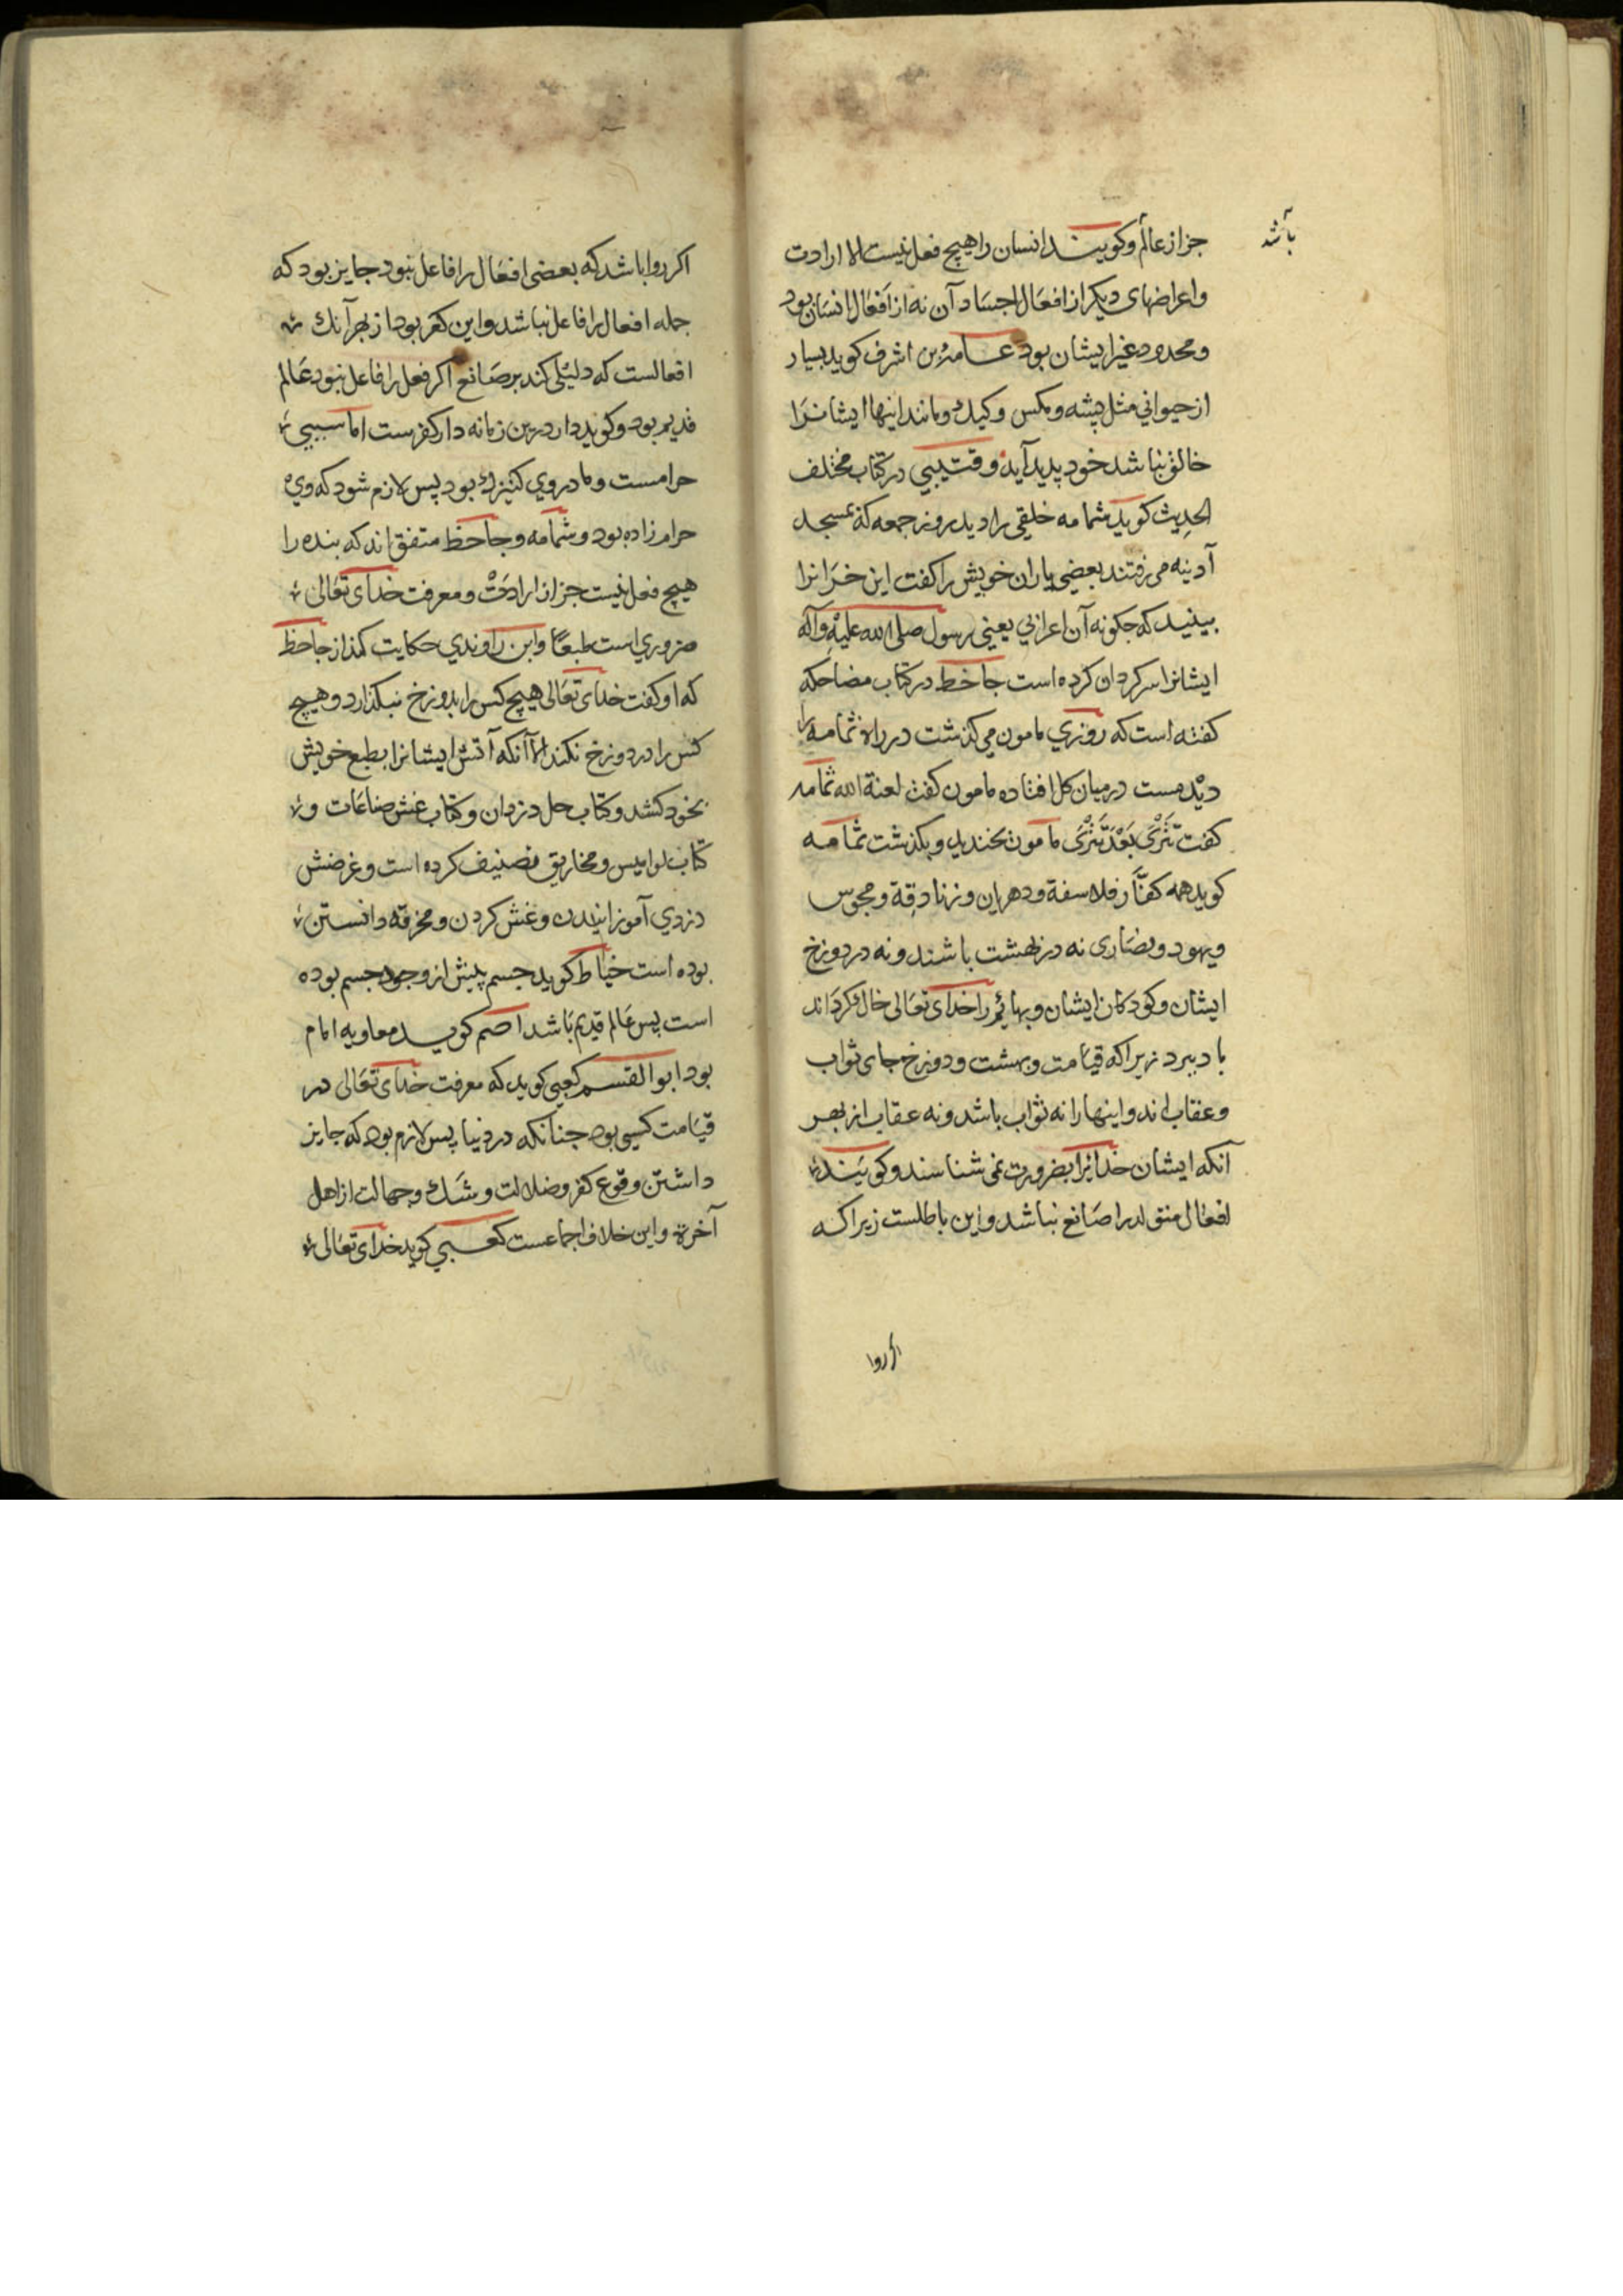 باشد
جز از عالم و کویند انسان را هیچ فعل نیست الا ارادت
و اعراضهای دیکر از افعال اجساد آن نه از افعال انسان بود
و محدود غیر ایشان بود اشرف کوید بسیار
از حیوانی مثل پشه و مکس و کیک و مانند اینها ایشانرا
خالق نباشد خود پدید آید و قتیبی در کتاب مختلف
الحدیث کوید ثمامه خلقی را دید روز جمعه که بمسجد
آدینه می رفتند بعضی یاران خویش را کفت این خرانرا
ببینید که جکونه آن اعرابی یعنی رسول صلی الله علیه وآله
ایشانرا سرکردان کرده است جاحظ در کتاب مضاحکه
کفته است که روزی مامون می کذشت در راه ثمامه را
دید مست در میان کل افتاده مامون کفت لعنة الله ثمامه
کفت تَتْرَی بَعْدَ تَتْرَی مامون بخندید و بکذشت ثمامه
کوید همه کفّار فلاسفة و دهریان و زنادقة و مجوس
و یهود و نصاری نه در بهشت باشند و نه در دوزخ
ایشان و کودکان ایشان و بهائم را خدای تعالی خاک کرداند
زیرا که قیامت و بهشت و دوزخ جای ثواب
و عقاب اند و اینها را نه ثواب باشد و نه عقاب از بهر
آنکه ایشان خدایرا بضرورت نمی شناسند و کویند
افعال متولد را صانع نباشد و این باطلست زیرا که
اکر روا
اکر روا باشد که بعضی افعال را فاعل نبود جایز بود که
جمله افعال را فاعل نباشد و این کفر بود از بهر آنک
افعالست که دلیلی کند بر صانع اکر فعل را فاعل نبود عالم
قدیم بود و کوید دار درین زمانه دار کفرست اما سبیی
حرامست و مادر وی کنیزک بود پس لازم شود که وی
حرام زاده بود و ثمامه و جاحظ متفق اند که بنده را
هیچ فعل نیست جز از ارادت و معرفت خدای تعالی
ضروری است طبعا و ابن راوندی حکایت کند از جاحظ
که او کفت خدای تعالی هیچ کس را بدوزخ نبکذارد و هیچ
کس را در دوزخ نکند الا آنکه آتش ایشانرا بطبع خویش
بخود کشد و کتاب حیل دزدان و کتاب غش صناعات و
کتاب نوامیس و مخاریق تصنیف کرده است و غرضش
دزدی آموزانیدن و غش کردن و مخرقه دانستن
بوده است خیاط کوید جسم پیش از وجود جسم بوده
است پس عالم قدیم باشد اصم کوید معاویه امام
بود ابو القسم کعبی کوید که معرفت خدای تعالی در
قیامت کسبی بود جنانکه در دنیا پس لازم بود که جایز
داشتن وقوع کفر و ضلالت و شک و جهالت از اهل
آخرة و این خلاف اجماعست کعبی کوید خدای تعالی